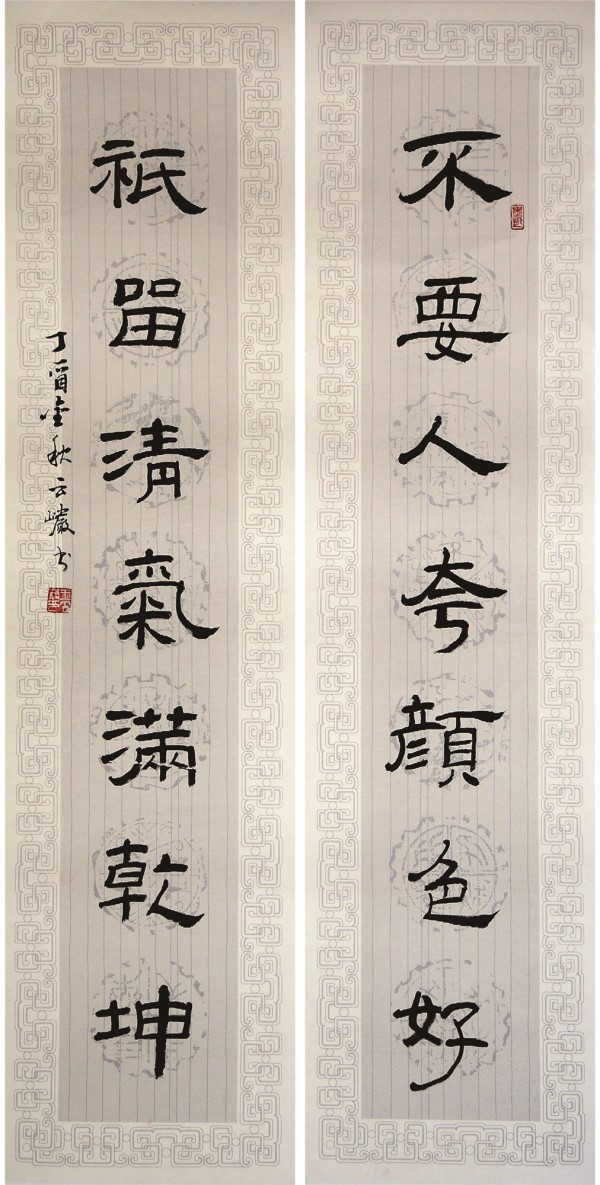 不要人夸颜色好
祇留清氣滿乾坤
丁酉金秋云巖书